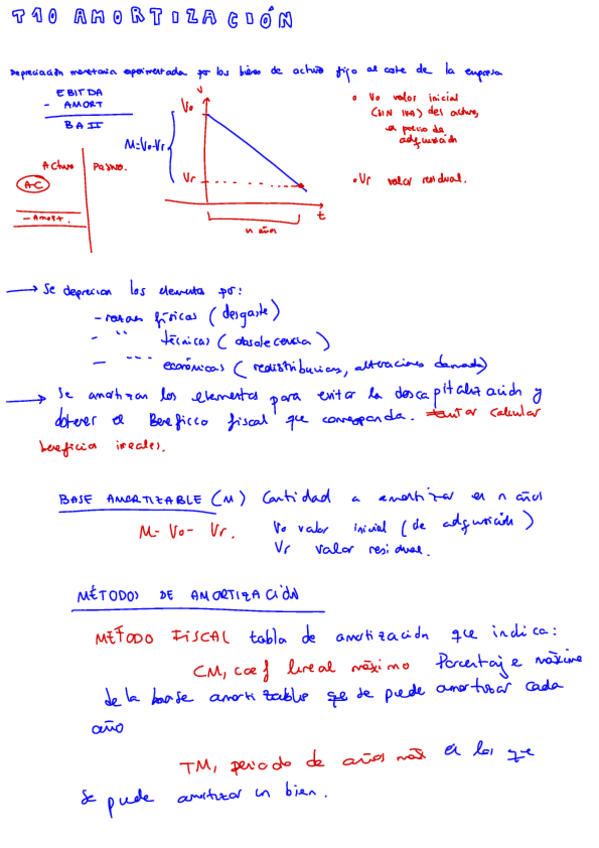 T10 AMORTIZACIÓN
Depreciación monetaria experimentada por los bienes de activo fijo al coste de la empresa
EBITDA
- AMORT
BAII
Activo Pasivo.
AC
- Amort.
V
Vo
M=Vo-Vr
Vr
t
n años
• Vo valor inicial
(SIN IVA) del activo,
a precio de
adquisición
• Vr valor residual.
→ Se deprecian los elementos por:
- razones físicas (desgaste)
- " técnicas (obsolecencia)
- " económicas (redistribucion, alteraciones demanda)
→ Se amortizan los elementos para evitar la descapitalización y
obtener el Beneficio fiscal que corresponda. Evitar calcular
beneficios irreales.
BASE AMORTIZABLE (M) Cantidad a amortizar en n años
M= Vo- Vr. Vo valor inicial (de adquisición)
Vr valor residual.
MÉTODOS DE AMORTIZACIÓN
MÉTODO FISCAL tabla de amortización que indica:
CM, coef lineal máximo Porcentaje máximo
de la base amortizable que se puede amortizar cada
año
TM, periodo de años máx en los que
se puede amortizar un bien.